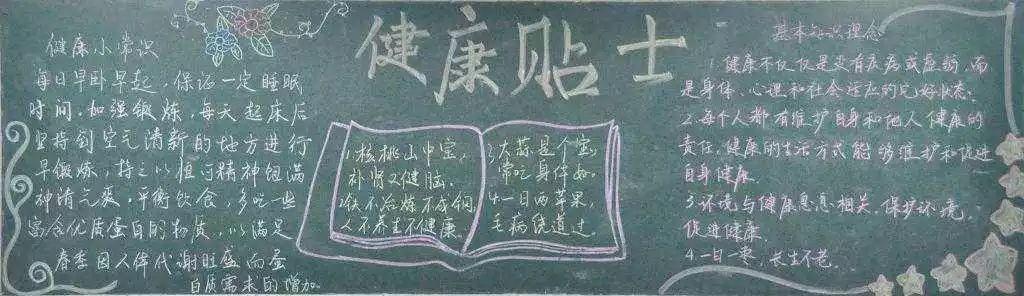 健康贴士
健康小常识
每日早卧早起,保证一定睡眠
时间,加强锻炼,每天起床后
坚持到空气清新的地方进行
早锻炼,持之以恒可精神饱满
神清气爽,平衡饮食,多吃一些
富含优质蛋白的物质,以满足
春季因人体代谢旺盛而蛋
白质需求的增加。
1.核桃山中宝,
补肾又健脑。
2.铁不冶炼不成钢,
人不养生不健康。
3.大蒜是个宝,
常吃身体好。
4.一日两苹果,
毛病绕道过。
基本知识理念
1.健康不仅仅是没有疾病或虚弱,而
是身体、心理和社会适应的完好状态。
2.每个人都有维护自身和他人健康的
责任,健康的生活方式能够维护和促进
自身健康。
3.环境与健康息息相关,保护环境,
促进健康。
4.一日一枣,长生不老。